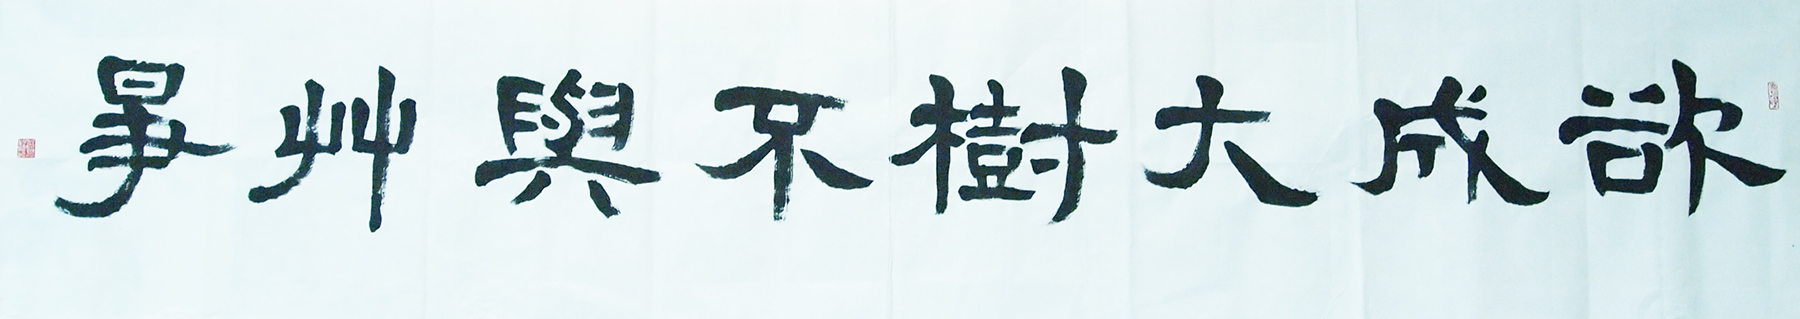 欲成大樹不與艸爭